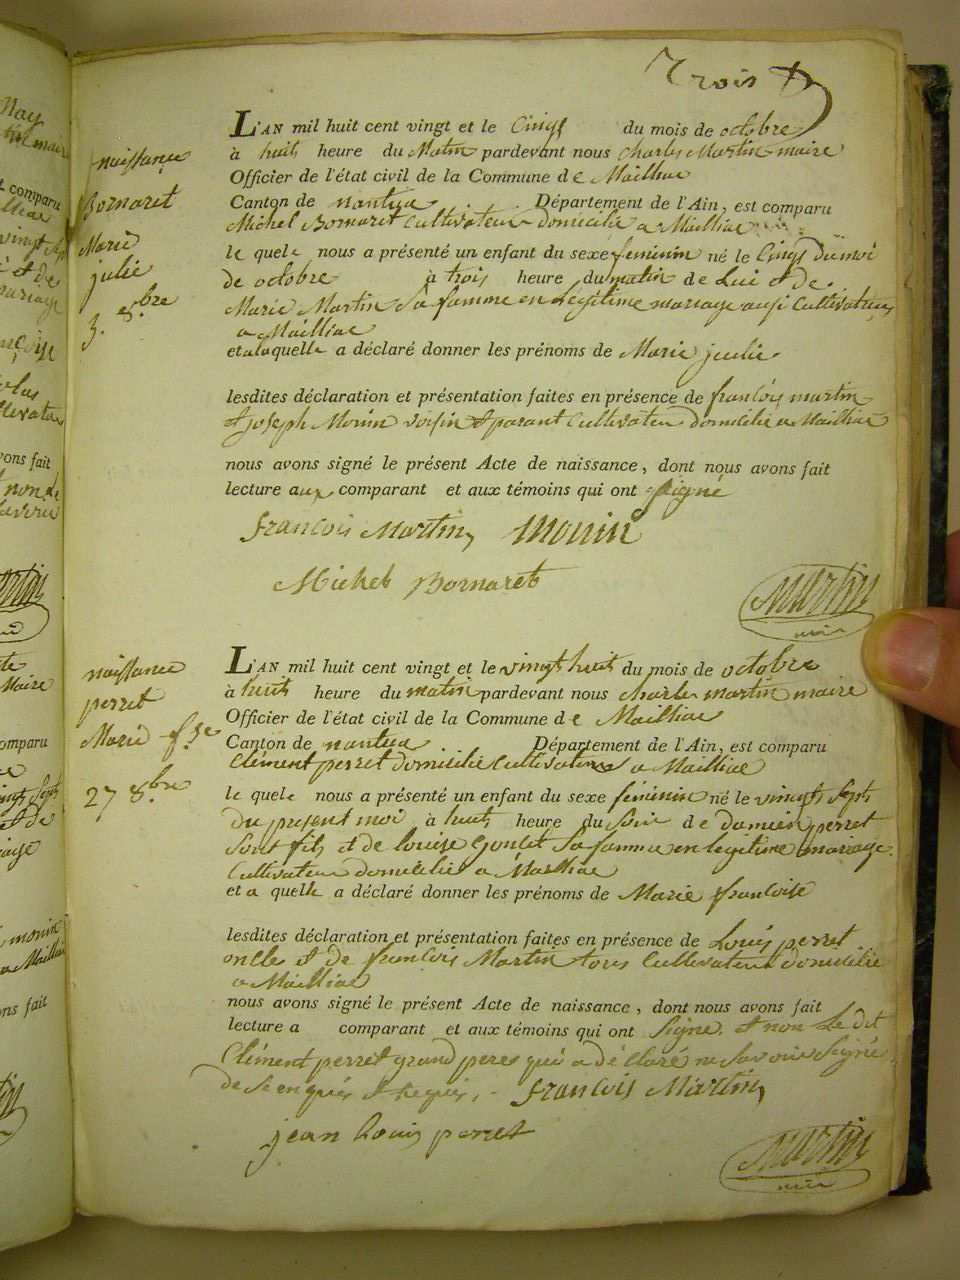 Trois
naissance
Bornaret
Marie
julie
3. 8.bre
L'AN mil huit cent vingt et le Cinqs du mois de octobre
à huit heure du Matin pardevant nous Charles Martin maire
Officier de l'état civil de la Commune de Mailliac
Canton de nantua Département de l'Ain, est comparu
Michel Bornaret Cultivateur domicilié a Mailliac
le quele nous a présenté un enfant du sexe feminin né le Cinqs du moi
de octobre à trois heure du matin de Lui et de
Marie Martin Sa famme en Legitime mariage ausi Cultivateur
a Mailliac
et a laquelle a déclaré donner les prénoms de Marie julie
lesdites déclaration et présentation faites en présence de françois martin
et joseph Monin voisin et parant Cultivateur domicilié a Mailliac
nous avons signé le présent Acte de naissance, dont nous avons fait
lecture aux comparant et aux témoins qui ont signé
françois Martin Monin
Michel Bornaret
Martin
maire
naissance
perret
Marie f.se
27 8.bre
L'AN mil huit cent vingt et le vingt huit du mois de octobre
à huit heure du matin pardevant nous Charle martin maire
Officier de l'état civil de la Commune de Mailliac
Canton de nantua Département de l'Ain, est comparu
Clément perret domicilié Cultivateur a Mailliac
le quele nous a présenté un enfant du sexe féminin né le vingts septs
du present moi à huit heure du Soir de damien perret
Sont fils et de louise Goulet Sa famme en legitime mariage
Cultivateur domicilié a Mailliac
et a quelle a déclaré donner les prénoms de Marie francoise
lesdites déclaration et présentation faites en présence de Louis perret
oncle et de françois Martin tous Cultivateur domicilié
a Mailliac
nous avons signé le présent Acte de naissance, dont nous avons fait
lecture a comparant et aux témoins qui ont Signé et non Le dit
Clément perret grand peres qui a déclaré ne Savoir Signé
de Se enquis et requis, françois Martin
jean Louis perret
Martin
maire